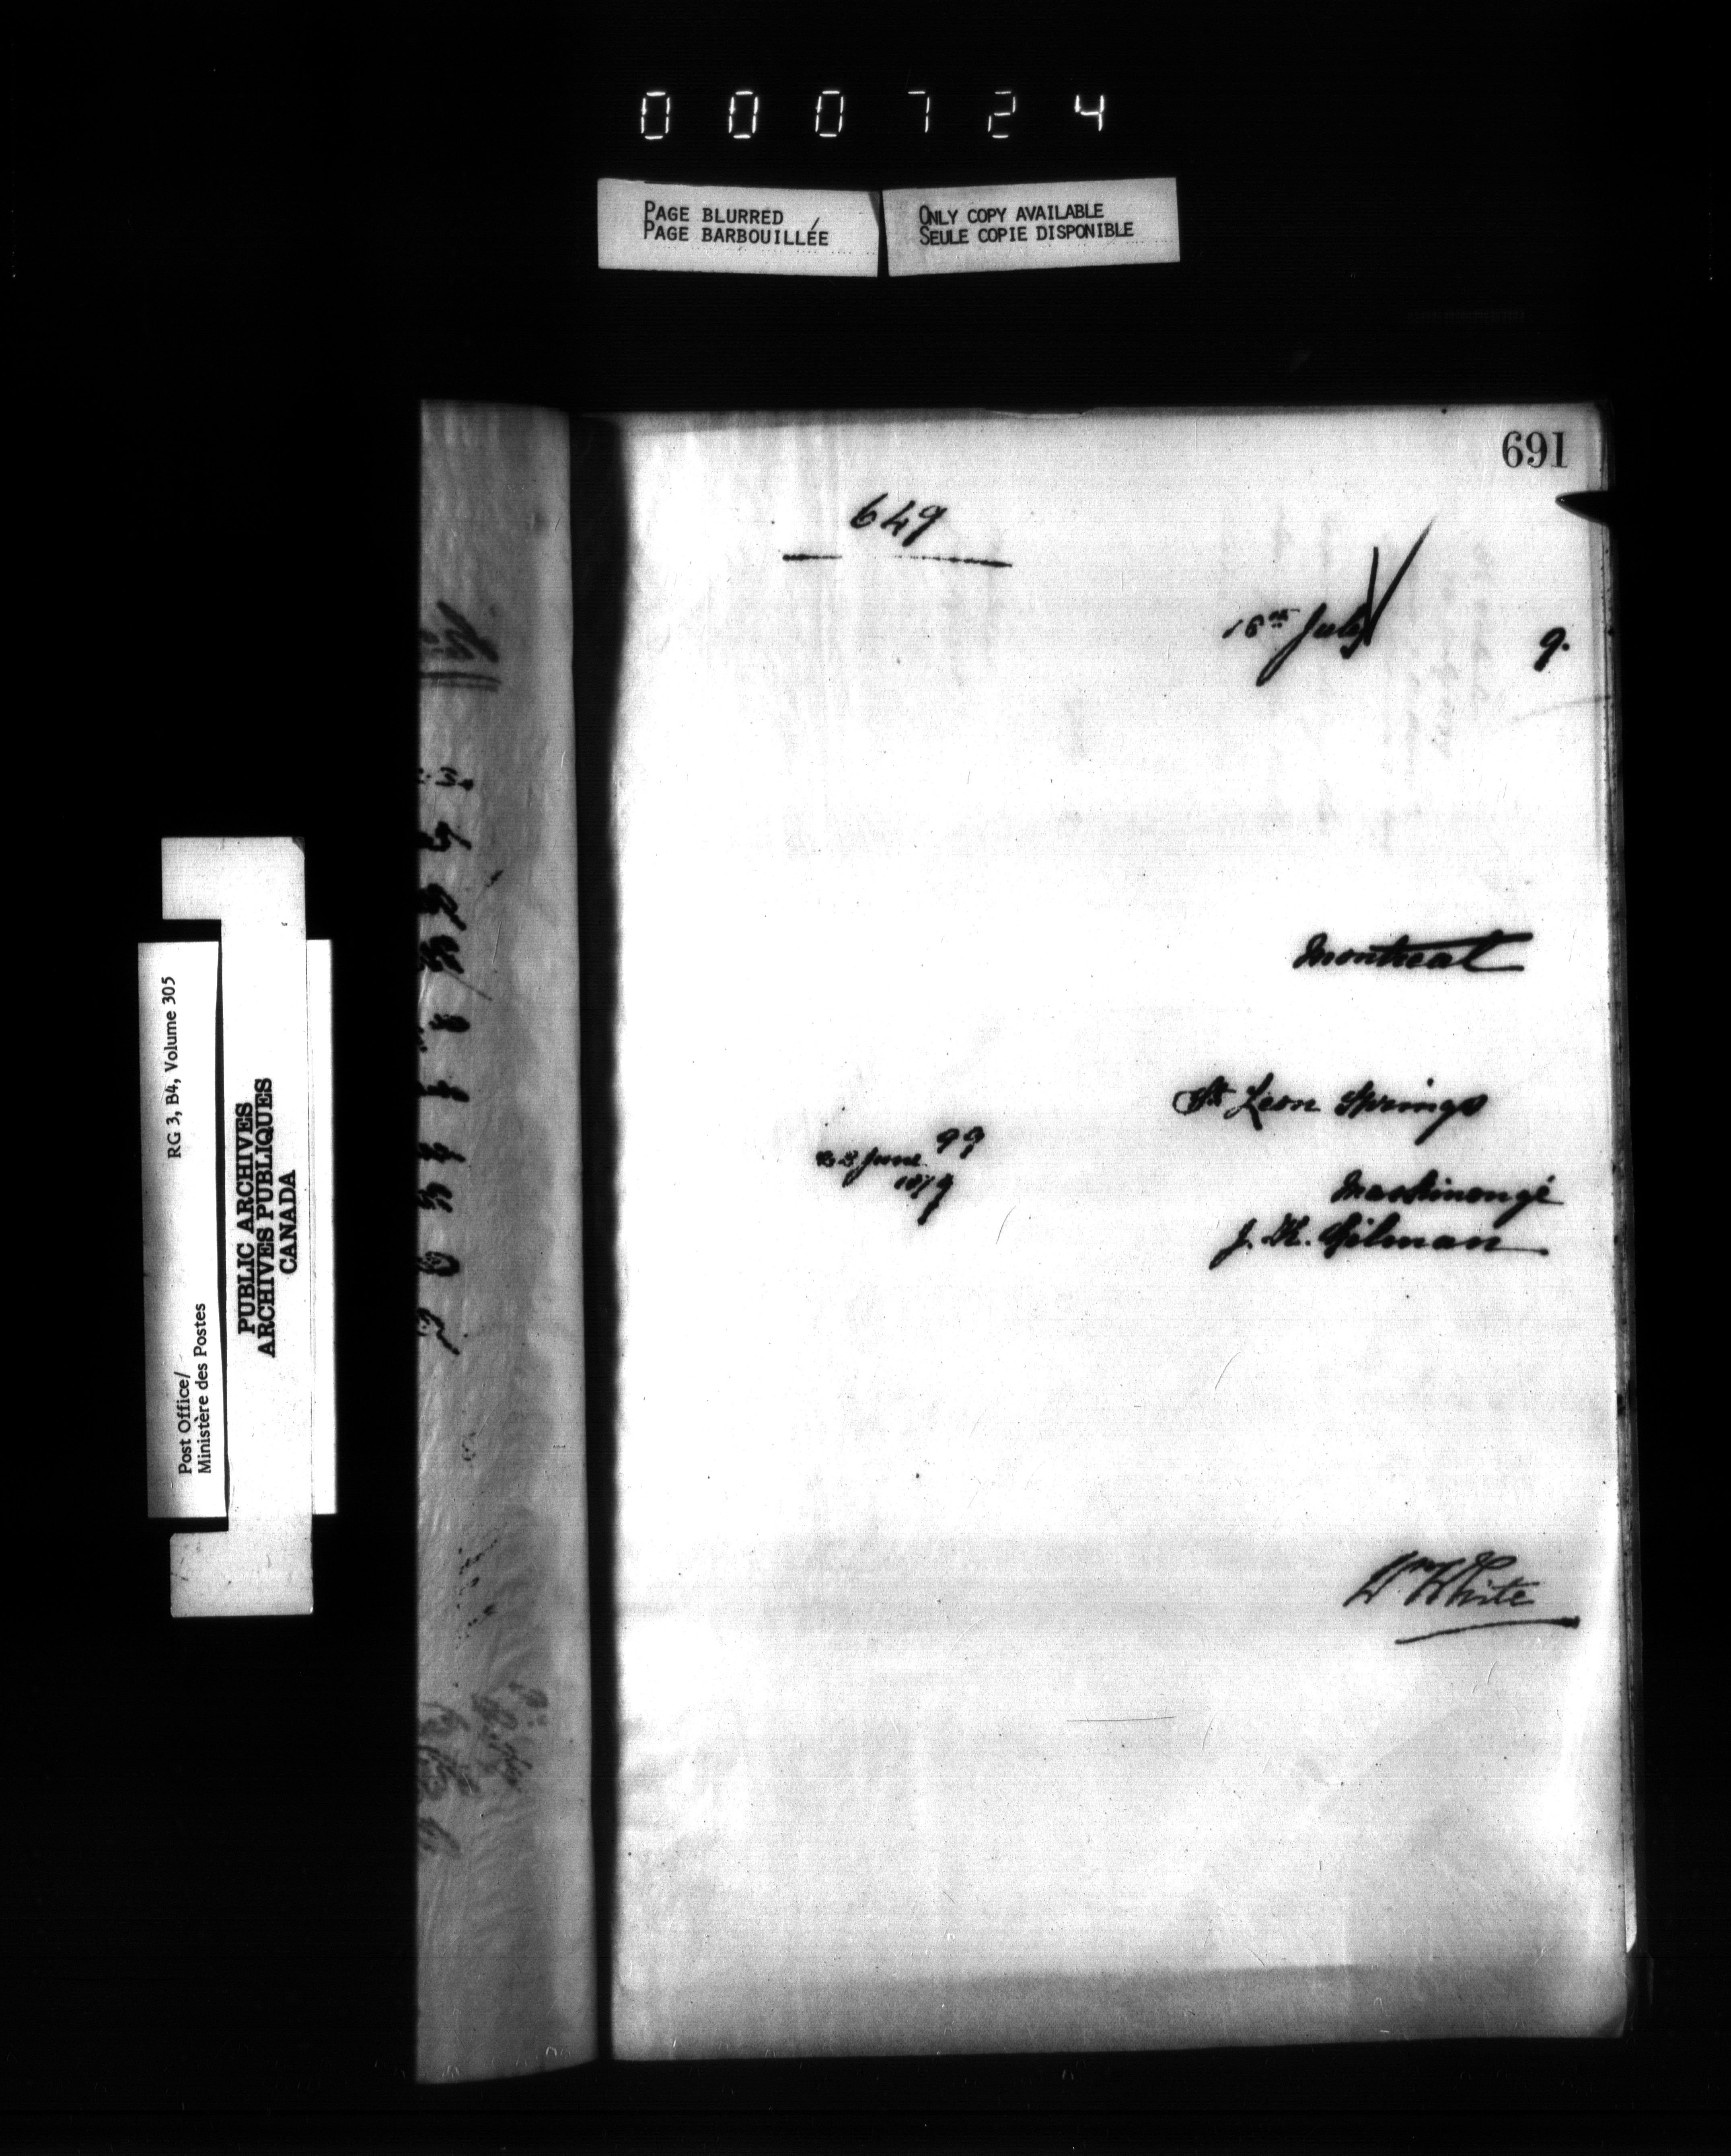 000724
PAGE BLURRED
PAGE BARBOUILLÉE
ONLY COPY AVAILABLE
SEULE COPIE DISPONIBLE
691
649
18th July
9.
Montreal
St Leon Springs
99
23 June
1879
Maskinongé
J. K. Gilman
Wm White
RG 3, B4, Volume 305
Post Office/
Ministère des Postes
PUBLIC ARCHIVES
ARCHIVES PUBLIQUES
CANADA